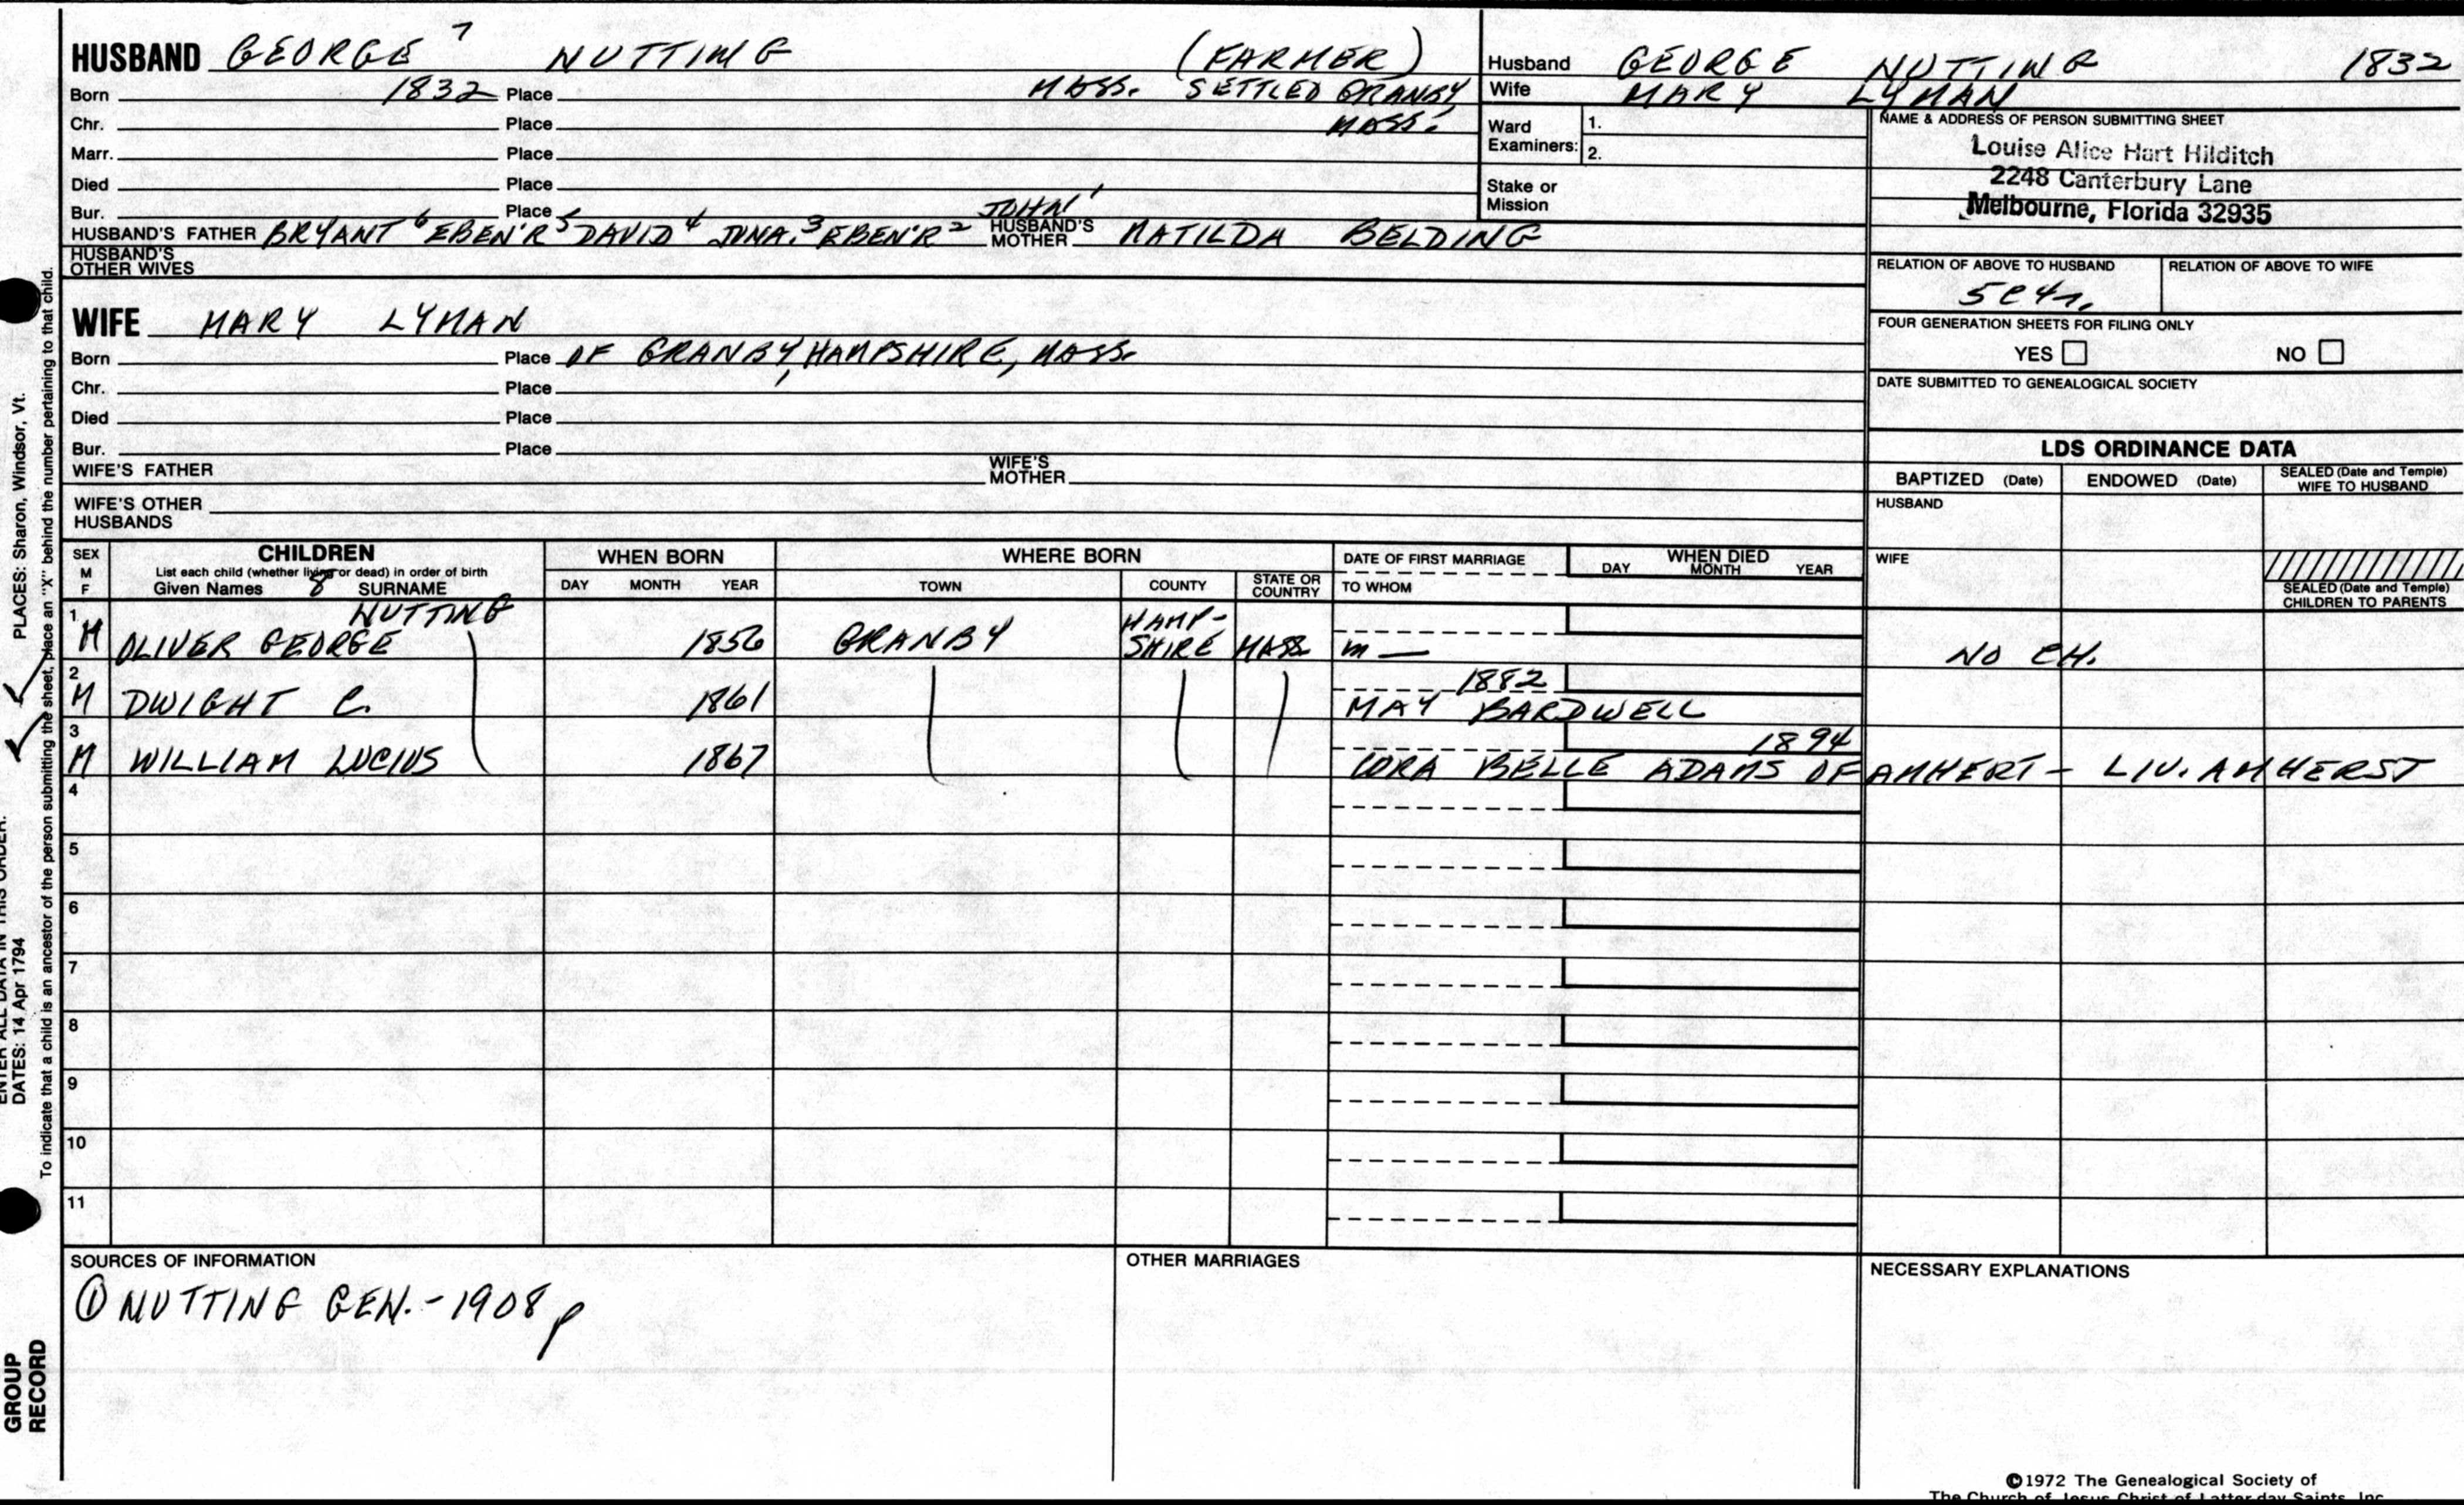 HUSBAND GEORGE 7 NUTTING (FARMER)
Born 1832 Place MASS. SETTLED GRANBY,
Chr. Place MASS.
Marr. Place
Died Place
Bur. Place JOHN 1
HUSBAND'S FATHER BRYANT 6 EBEN'R 5 DAVID 4 JONA. 3 EBEN'R 2 HUSBAND'S MOTHER MATILDA BELDING
HUSBAND'S OTHER WIVES
Husband GEORGE NUTTING 1832
Wife MARY LYMAN
Ward Examiners: 1.
2.
Stake or Mission
NAME & ADDRESS OF PERSON SUBMITTING SHEET
Louise Alice Hart Hilditch
2248 Canterbury Lane
Melbourne, Florida 32935
RELATION OF ABOVE TO HUSBAND RELATION OF ABOVE TO WIFE
5C4r.
FOUR GENERATION SHEETS FOR FILING ONLY
YES NO
DATE SUBMITTED TO GENEALOGICAL SOCIETY
WIFE MARY LYMAN
Born Place OF GRANBY, HAMPSHIRE, MASS.
Chr. Place
Died Place
Bur. Place
WIFE'S FATHER WIFE'S MOTHER
WIFE'S OTHER HUSBANDS
LDS ORDINANCE DATA
BAPTIZED (Date) ENDOWED (Date) SEALED (Date and Temple) WIFE TO HUSBAND
HUSBAND
WIFE
SEALED (Date and Temple) CHILDREN TO PARENTS
SEX M F
CHILDREN
List each child (whether living or dead) in order of birth
Given Names 8 SURNAME
WHEN BORN
DAY MONTH YEAR
WHERE BORN
TOWN COUNTY STATE OR COUNTRY
DATE OF FIRST MARRIAGE
TO WHOM
WHEN DIED
DAY MONTH YEAR
NUTTING
1 M OLIVER GEORGE 1856 GRANBY HAMP-SHIRE MASS m — NO CH.
2 M DWIGHT C. 1861 1882
MAY BARDWELL
3 M WILLIAM LUCIUS 1867 1894
CORA BELLE ADAMS OF AMHERT – LIV. AMHERST
4
5
6
7
8
9
10
11
SOURCES OF INFORMATION
① NUTTING GEN. - 1908 p
OTHER MARRIAGES
NECESSARY EXPLANATIONS
©1972 The Genealogical Society of
The Church of Jesus Christ of Latter-day Saints, Inc.
PLACES: Sharon, Windsor, Vt.
ENTER ALL DATA IN THIS ORDER:
DATES: 14 Apr 1794
To indicate that a child is an ancestor of the person submitting the sheet, place an "X" behind the number pertaining to that child.
GROUP
RECORD